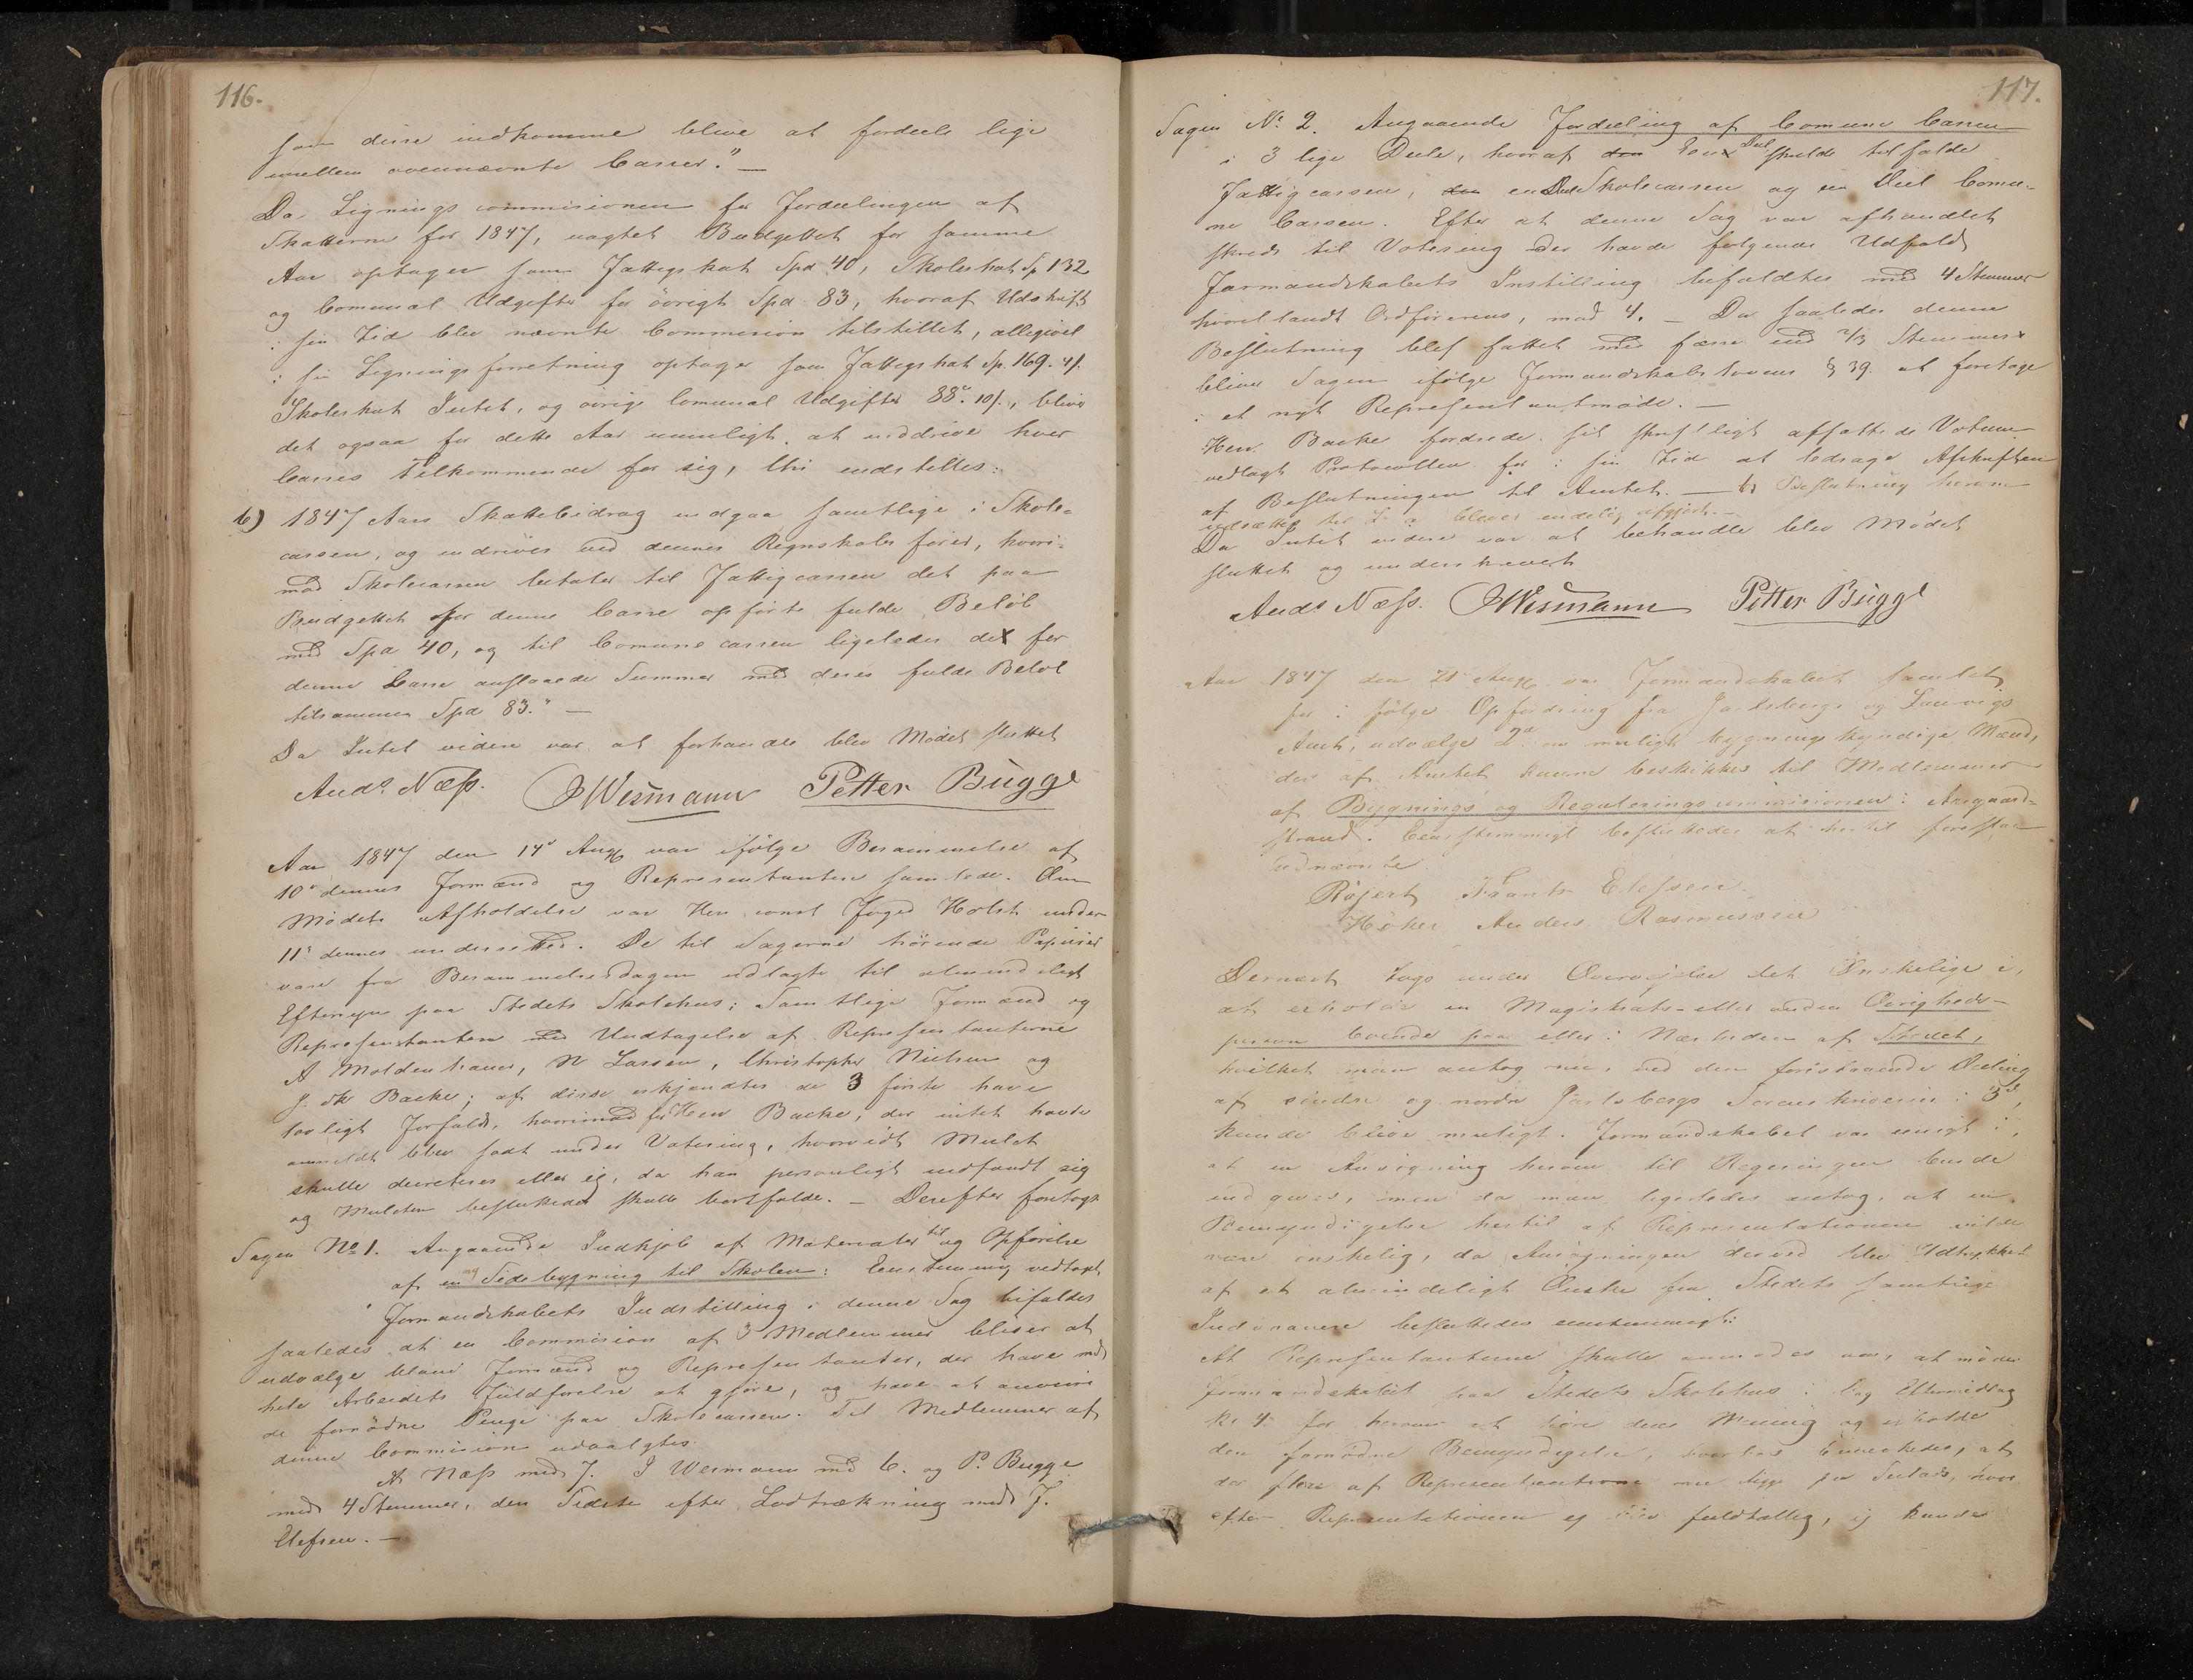 116.
som disse indkomme blive at fordeele lige
mellem ovennævnte Casser." —
Da Lignings commisionen for Fordeelingen af
Skatterne for 1847, uagtet Budgettet for samme
Aar optager som Fattigskat Spd 40, Skoleskat Sp 132
og Comunal Udgifter for øvrigt Spd 83, hvoraf Udskrift
i sin Tid blev nævnte Commision tilstillet, alligevel
i sin Ligningsforretning optager som Fattigskat Sp. 169. 4/.
Skoleskat Intet, og øvrige Comunal Udgifter 88. 10/., bliver
det ogsaa for dette Aar umuligt at inddrive hver
Casses Tilkommende for sig, thi indstilles:
b) 1847 Aars Skattebidrag indgaa samtlige i Skole-
cassen, og indrives ved dennes Regnskabsfører, hvori-
mod Skolecassen betaler til Fattigcassen det paa
Budgettet for denne Casse opførte fulde Beløb
med Spd 40, og til Comune cassen ligeledes det for
denne Casse anslaaede Summer med deres fulde Beløb
tilsammen Spd 83." —
Da Intet videre var at forhandle blev Mødet sluttet
Ands Næss. JWesmann Petter Bugge
Aar 1847 den 14de Aug var ifølge Berammelse af
10de dennes Formænd og Representanter samlede. Om
Mødets Afholdelse var Herr const Foged Holst under
11te dennes underrettet. De til Sagerne hørende Papirer
vare fra Berammelsesdagen udlagte til almindeligt
Eftersyn paa Stedets Skolehus; Samtlige Formænd og
Representanter med Undtagelse af Representanterne
A Moldenhauer, N Larsen, Christopher Nielsen og
J. Chr Backe; af disse erkjendtes de 3 første have
lovligt Forfald, hvorimod for Herr Backe, der intet havde
anmeldt blev sadt under Votering, hvorvidt Mulct
skulle decreteres eller ej, da han personligt indfandt sig
og Mulcten besluttedes skulle bortfalde. — Derefter foretoges
Sagen No 1. Angaaende Indkjøb af Materialer til og Opførelse
af en ny Sidebygning til Skolen: Eenstemmig vedtaget,
"Formandskabets Indstilling i denne Sag bifaldes
saaledes at en Commision af 3 Medlemmer bliver at
udvælge blant Formænd og Representanter, der have med
hele Arbeidets Fuldførelse at gjøre, og have at anvise
de fornødne Penge paa Skolecassen. Til Medlemmer af
denne Commision udvalgtes
A Næss med 7. J Wesmann med 6. og P. Bugge
med 4 Stemmer, den Sidste efter Lodtrækning med F.
Elefsen. —
117.
Sagen No 2. Angaaende Fordeeling af Comune Cassen
i 3 lige Deele, hvoraf den Een Deel skulde tilfalde
Fattigcassen, den en Deel Skolecassen og en Deel Comu-
ne Cassen. Efter at denne Sag var afhandlet
skreds til Votering der havde følgende Udfald
Formandskabets Instilling bifaldtes med 4 Stemmer
hvoriblandt Ordførerens, mod 4. — Da saaledes denne
Beslutning blef fattet med færre end 2/3 Stemmer
bliver Sagen ifølge Formandskabslovens § 39 at foretage
i et nyt Representantmøde. —
Herr Backe fordrede sit skriftligt affattede Votum
vedlagt Protocollen for i sin Tid at ledsage Afskriften
af Beslutningen til Amtet. — b Beslutning herom
udsættes til L a bliver endelig afgjort. —
Da Intet videre var at behandle blev Mødet
sluttet og underskrevet
Ands Næss. JWesmann Petter Bugge
Aar 1847 den 21de Aug var Formandskabet samlet
for i følge Opfordring fra Jarlsbergs og Laurvigs
Amt, udvælge 2de om muligt bygningskyndige Mænd,
der af Amtet kunne beskikkes til Medlemmer
af Bygnings og Reguleringscommisionen i Aasgaard-
strand. Eenstemmigt besluttedes at hertil foreslaa
bednævnte
Røjert Frantz Elefsen
Høker Anders Rasmussen
Dernæst toges under Overvejelse det Ønskelige i,
at erholde en Magistrats- eller anden Øvrigheds-
person boende paa eller i Nærheden af Stedet,
hvilket man antog nu, ved den forestaaende Deeling
af søndre og nordre Jarlsbergs Sorenskriverier i 3de,
kunde blive muligt. Formandskabet var enigt i,
at en Ansøgning herom til Regjeringen burde
indgives, men da man ligeledes antog, at en
Bemyndigelse hertil af Representationen vilde
være ønskelig, da Ansøgningen derved blev Udtrykket
af et almindeligt Ønske fra Stedets samtlige
Indvaanere besluttedes eenstemmigt:
At Representanterne skulle anmodes om, at møde
Formandskabet paa Stedets Skolehus i Dag Eftermiddag
Kl 4 for herom at høre deres Mening og erholde
den fornødne Bemyndigelse, hvorhos bemærkedes, at
der flere af Representanterne om ligge paa Indlads, hvor
efter Representationen ej blev fuldtallig, ej kunde